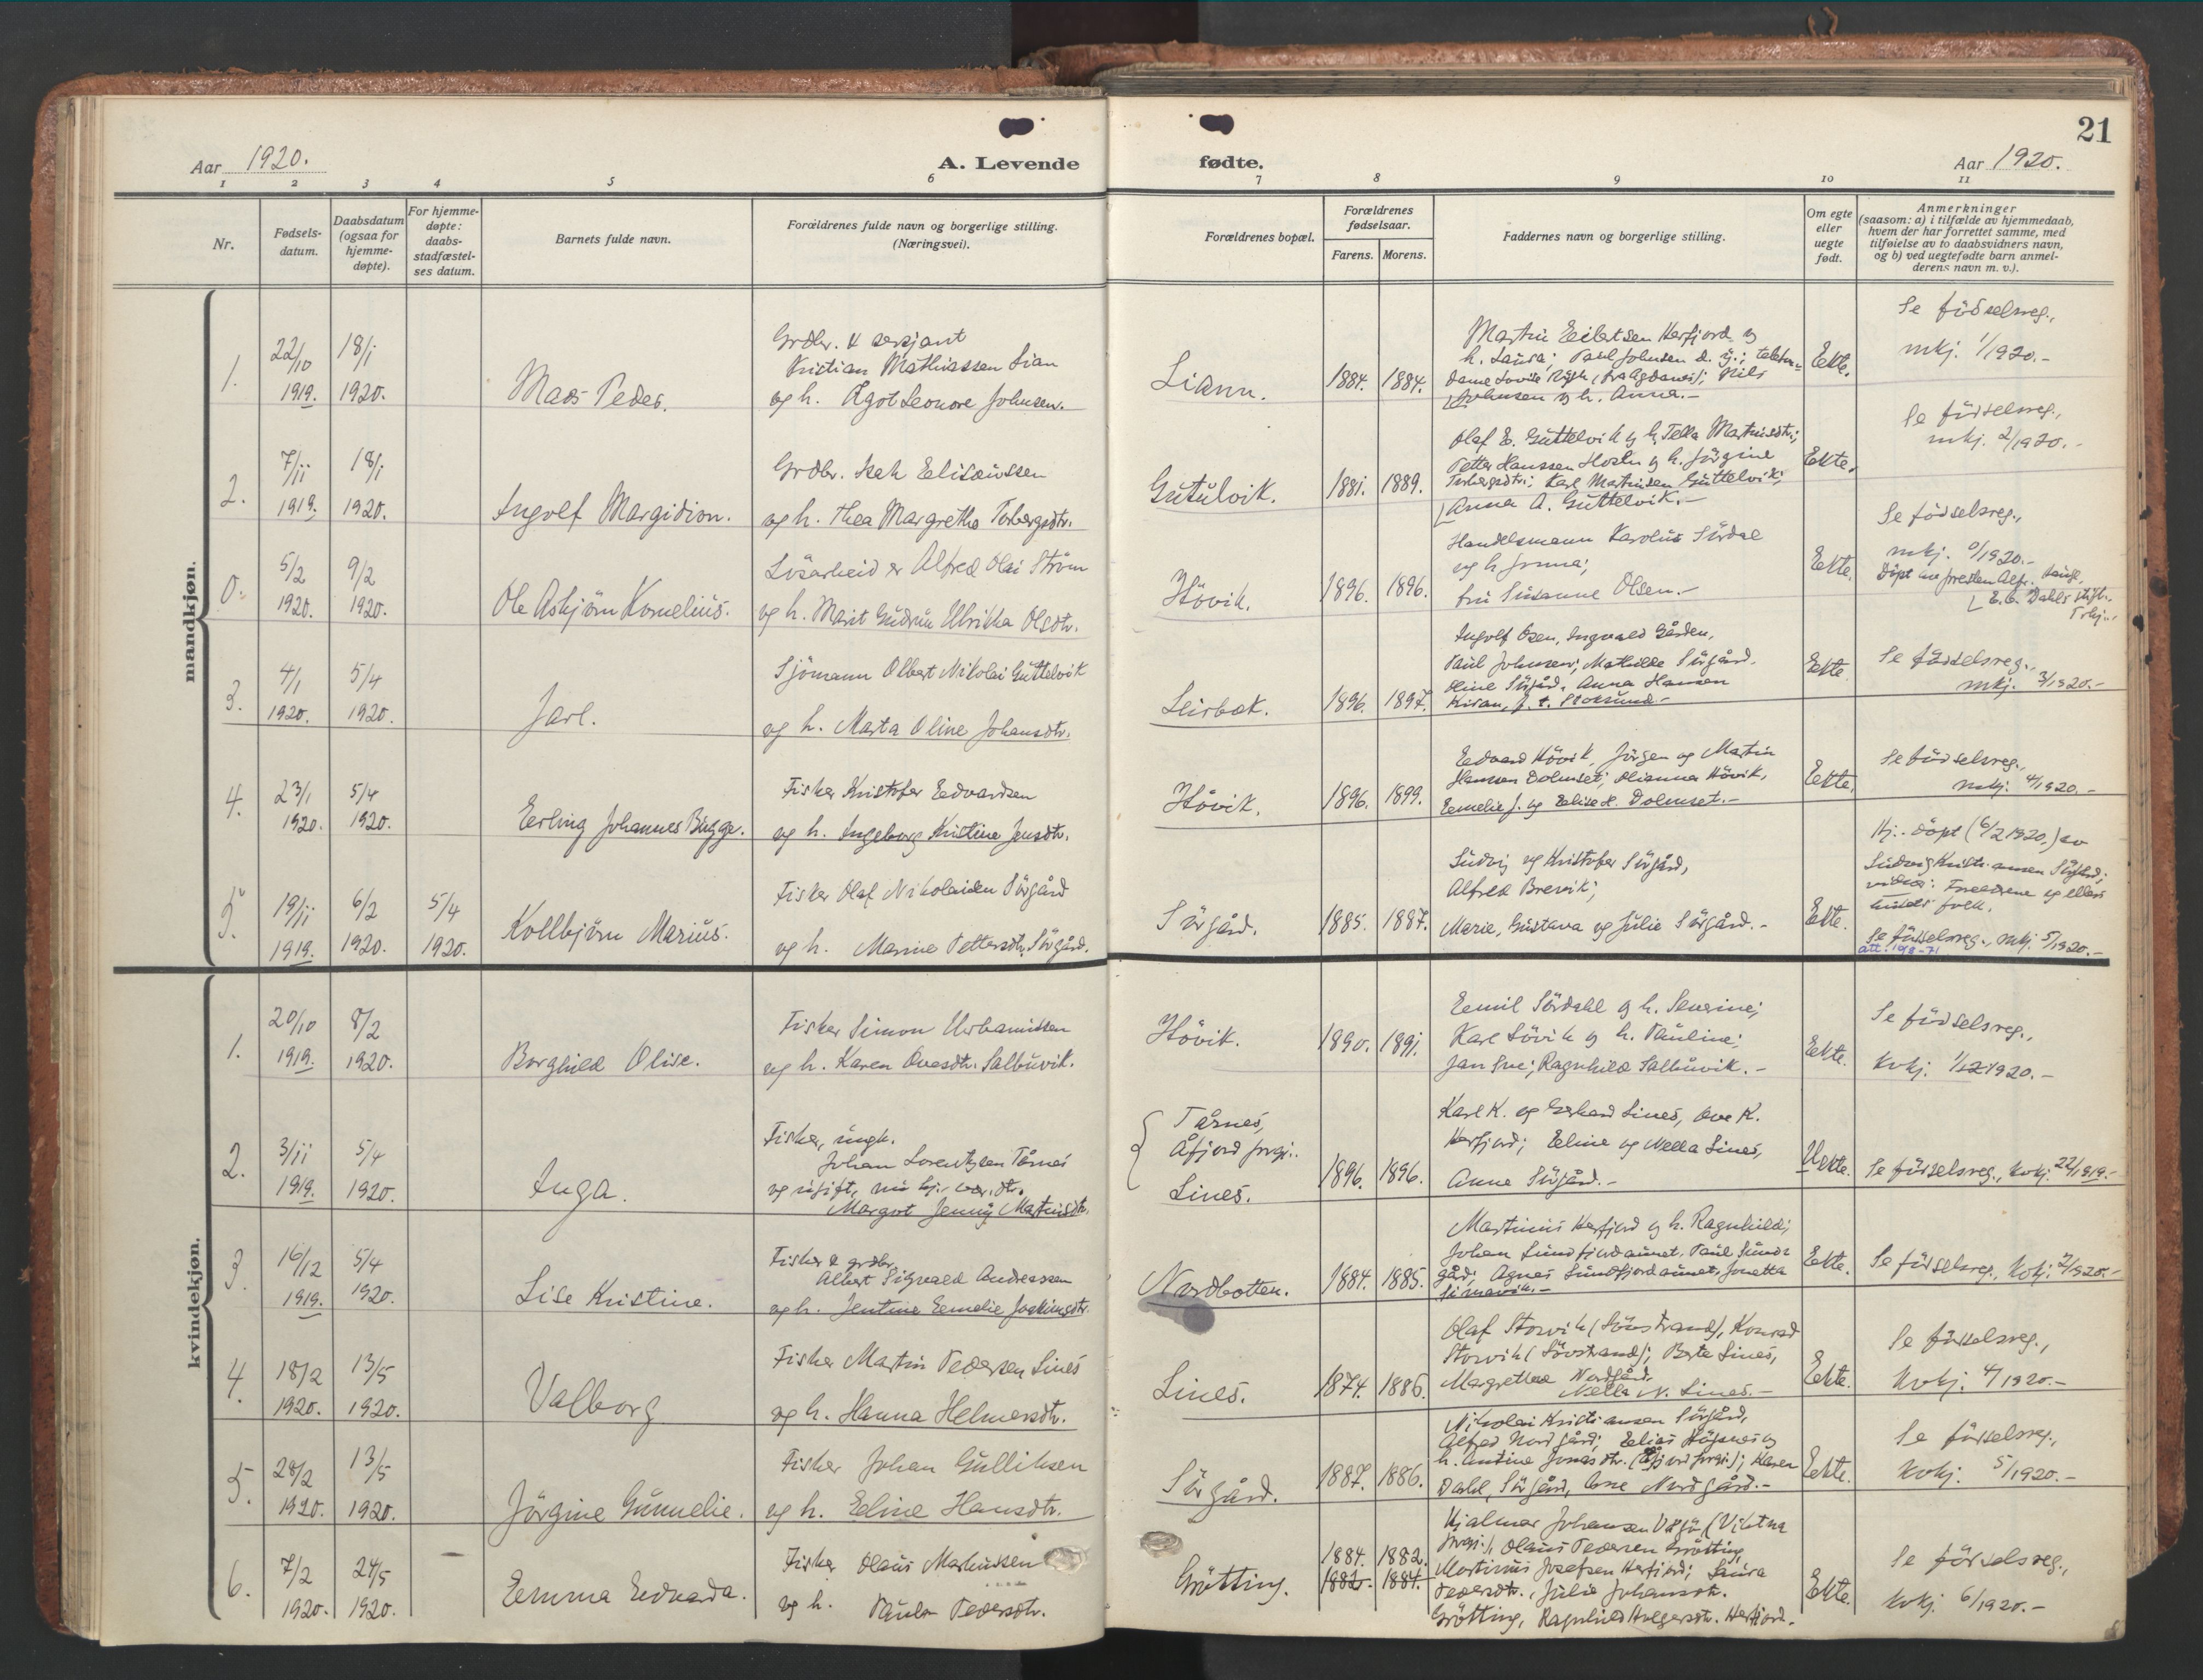 21
Aar 1920.
A. Levende
fødte.
Aar 1920.
1 2 3 4 5 6 7 8 9 10 11
Nr.
Fødsels-
datum.
Daabsdatum
(ogsaa for
hjemme-
døpte).
For hjemme-
døpte:
daabs-
stadfæstel-
ses datum.
Barnets fulde navn.
Forældrenes fulde navn og borgerlige stilling.
(Næringsvei).
Forældrenes bopæl.
Forældrenes
fødselsaar.
Farens. Morens.
Faddernes navn og borgerlige stilling.
Om egte
eller
uegte
født.
Anmerkninger
(saasom: a) i tilfælde av hjemmedaab,
hvem der har forrettet samme, med
tilføielse av to daabsvidners navn,
og b) ved uegtefødte barn anmel-
derens navn m. v.).
mandkjøn.
1.
22/10
1919.
18/1
1920.
Mads Peder.
Grdbr. & sersjant
Kristian Mathiassen Lian
og h. Agot Leonore Johnsen.
Liann.
1884. 1884.
Martin Eilertsen Herfjord og
h. Laura; Paul Johnsen d. y.; telefon-
dame Lovise (fra Agdanes); Nils
Johnsen og h. Anna.-
Ekte.
Se födselsreg.,
mkj. 1/1920.-
2.
7/11
1919.
18/1
1920.
Ingolf Margidion.
Grdbr. Isak Elisæussen
og h. Thea Margretha Torbergsdtr.
Gutulvik.
1881. 1889.
Olaf E. Guttelvik og h. Tella Martinsdtr;
Petter Hanssen Hosln og h. Jörgine
Torbergsdtr; Karl Martinsen Guttelvik;
Anna A. Guttelvik.-
Ekte.
Se födselsreg.,
mkj. 2/1920.-
0.
5/2
1920.
9/2
1920.
Ole Asbjörn Kornelius.
Lösarbeider Alfred Olai Ström
og h. Marit Gudrun Ulrikka Olsdtr.
Hövik.
1896. 1896.
Handelsmann Karolius Sördal
og h. Jenna;
fru Susanne Olsen.-
Ekte.
Se födselsreg.,
mkj. 0/1920.-
Döpt av presten Alfr.
E. C. Dahls stift.,
3.
4/1
1920.
5/4
1920.
Jarl.
Sjömann Olbert Nikolai Guttelvik
og h. Marta Oline Johansdtr.
Leirbæk.
1896. 1897.
Ingolf Osen, Ingvald Gården,
Paul Johnsen; Mathilde Sörgård,
Oline Sörgård, Anna Hansen
Kiran, p. t. Stoksund.-
Ekte
Se födselsreg.,
mkj. 3/1920.-
4.
23/1
1920.
5/4
1920.
Erling Johannes Bugge.
Fisker Kristofer Edvardsen
og h. Ingeborg Kristine Jensdtr.
Hövik.
1896. 1899.
Edvard Hövik, Jörgen og Martin
Hansen Dolmset; Olianna Hövik,
Emelie J. og Elise H. Dolmset.-
Ekte.
Se födselsreg.,
mkj. 4/1920.-
5.
19/11
1919.
6/2
1920.
5/4
1920.
Kollbjörn Marius.
Fisker Olaf Nikolaisen Sörgård
og h. Marine Pettersdtr. Sörgård.
Sörgård.
1885. 1887.
Ludvig og Kristofer Sörgård,
Alfred Brevik;
Marie, Gustava og Julie Sörgård.-
Ekte.
Hj.-döpt (6/2 1920.) av
Ludvig Kristiansen Sörgård;
vidner: Foreldrene og ellers
husets folk.
Se födselsreg., mkj. 5/1920.-
att. 19/8-71
kvindekjøn.
1.
20/10
1919.
8/2
1920.
Borghild Olise.
Fisker Simon Urbanussen
og h. Karen Ovesdtr. Salbuvik.
Hövik.
1890. 1891.
Emil Sördahl og h. Severine;
Karl Lövik og h. Pauline;
Jan Sve; Ragnhild Salbuvik.-
Ekte.
Se födselsreg.,
kvkj. 1/1920.-
2.
3/11
1919.
5/4
1920.
Inga.
Fisker, ungk.
Johan Lorentzsen Tårnes
og ugift,
Margot Jenny Martinsdtr.
Tårnes,
Åfjord prgj.
Lines.
1896. 1896.
Karl K. og Gerhard Lines, Ove K.
Herfjord; Eline og Nella Lines,
Anna Sörgård.-
Uekte.
Se födselsreg., kvkj. 22/1919.-
3.
16/12
1919.
5/4
1920.
Lise Kristine.
Fisker & grdbr.
Albert Sigvald Andreassen
og h. Jentine Emelie Joakimsdtr.
Nordbotten.
1884. 1885.
Martinus Herfjord og h. Ragnhild;
Johan Sundfjordaunet, Paul Sunds
gård; Agnes Sundfjordaunet, Jonetta
Simavik.-
Ekte.
Se födselsreg., kvkj. 2/1920.-
4.
18/2
1920.
13/5
1920.
Valborg
Fisker Martin Pedersen Lines
og h. Hanna Helmersdtr.
Lines.
1874. 1886.
Olaf Storvik (Sörstrand), Konrad
Storvik (Sörstrand); Berte Lines,
Margrethe Nordgård,
Nella N. Lines.-
Ekte.
Se födselsreg.,
kvkj. 4/1920.-
5.
28/2
1920.
13/5
1920.
Jörgine Gunnelie.
Fisker Johan Gulliksen
og h. Eline Hansdtr.
Sörgård.
1887. 1886.
Nikolai Kristiansen Sörgård,
Alfred Nordgård; Elias Högsnes og
h. Antine Jonasdtr. (Åfjord prgj.); Karen
Dahl, Sörgård, Ane Nordgård.-
Ekte.
Se födselsreg.,
kvkj. 5/1920.-
6.
7/2
1920.
24/5
1920.
Emma Edvarda.
Fisker Olaus Markussen
og h. Paula Pedersdtr.
Grötting.
1884. 1882.
1882. 1884.
Hjalmar Johansen (Viktna
prgj.), Olaus Pedersen Grötting,
Martinus Josefsen Herfjord; Laura
Pedersdtr., Julie Johansdtr.
Grötting, Ragnhild Holgersdtr. Herfjord.-
Ekte.
Se födselsreg.,
kvkj. 6/1920.-